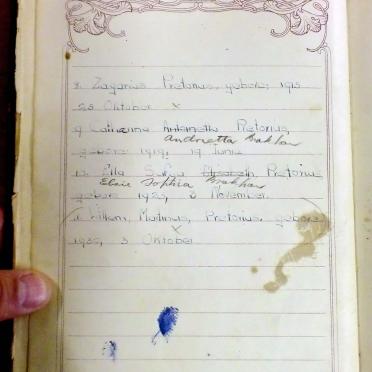 8. Zagarias Pretorius, gebore, 1915
25 Oktober x
9 Catharina Antoinetta Pretorius,
Andrietta
gebore 1919, 19 Junie
10. Ella Sofya Elizabeth Pretorius
Elsie Sophia
gebore 1923, 8 November.
Willem, Martinus, Pretorius, gebore
x
3 Oktober